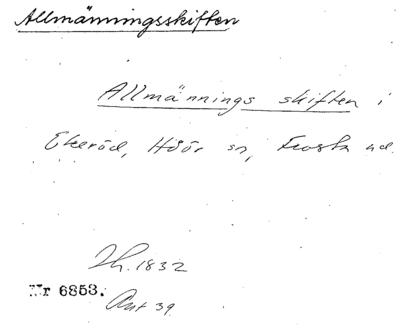 Allmänningsskiften
Allmännings skiften i
Ekeröd, Höör sn, Frosta hd.
Lh. 1832
Nr 6853.
Ant 39